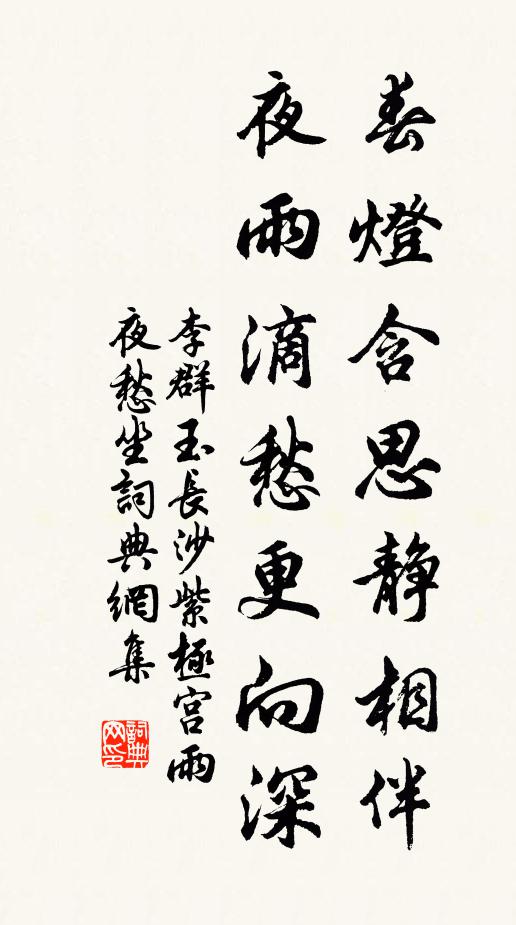 春燈含思静相伴
夜雨滴愁更向深
李群玉長沙紫極宫雨
夜愁坐詞典網集
詞典
网印